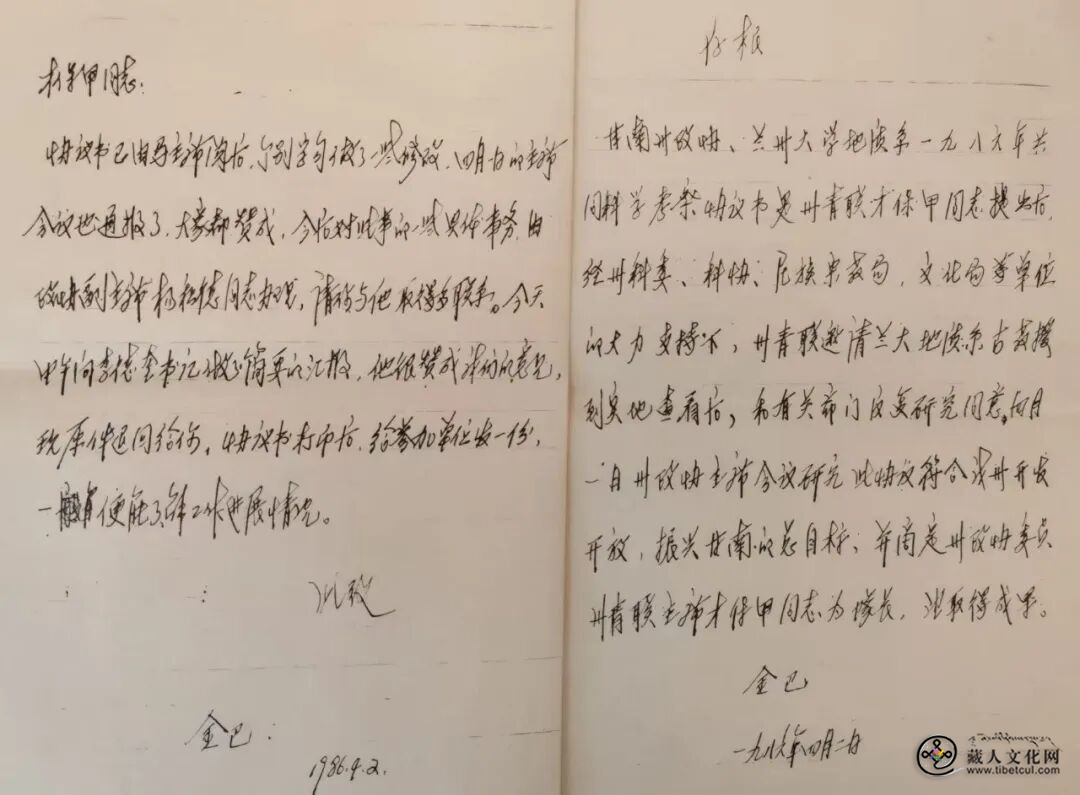 才保甲同志：
协议书已由马主席阅后，个别字句做了一些修改，四月一日的主席
会议也通报了，大家都赞成，今后对此事的一些具体事务，由
政协副主席杨松德同志办理，请你与他取得联系。今天
中午向李德奎书记做了简要的汇报，他很赞成我们的意见，
现原件退回给你，协议书打印后，给参加单位发一份，
便能了解工作进展情况。
此致
金巴：
1986.4.2.
存根
甘南州政协、兰州大学地质系一九八六年共
同科学考察协议书是州青联才保甲同志提出后，
经州科委、科协、民族宗教局，文化局等单位
的大力支持下，州青联邀请兰大地质系古教授
到实地查看后，和有关部门反复研究同意。四月
一日州政协主席会议研究此协议符合我州开发
开放，振兴甘南的总目标，并商定州政协委员
州青联主席才保甲同志为队长，取得成果。
金巴
一九八六年四月二日
藏人文化网
www.tibetcul.com